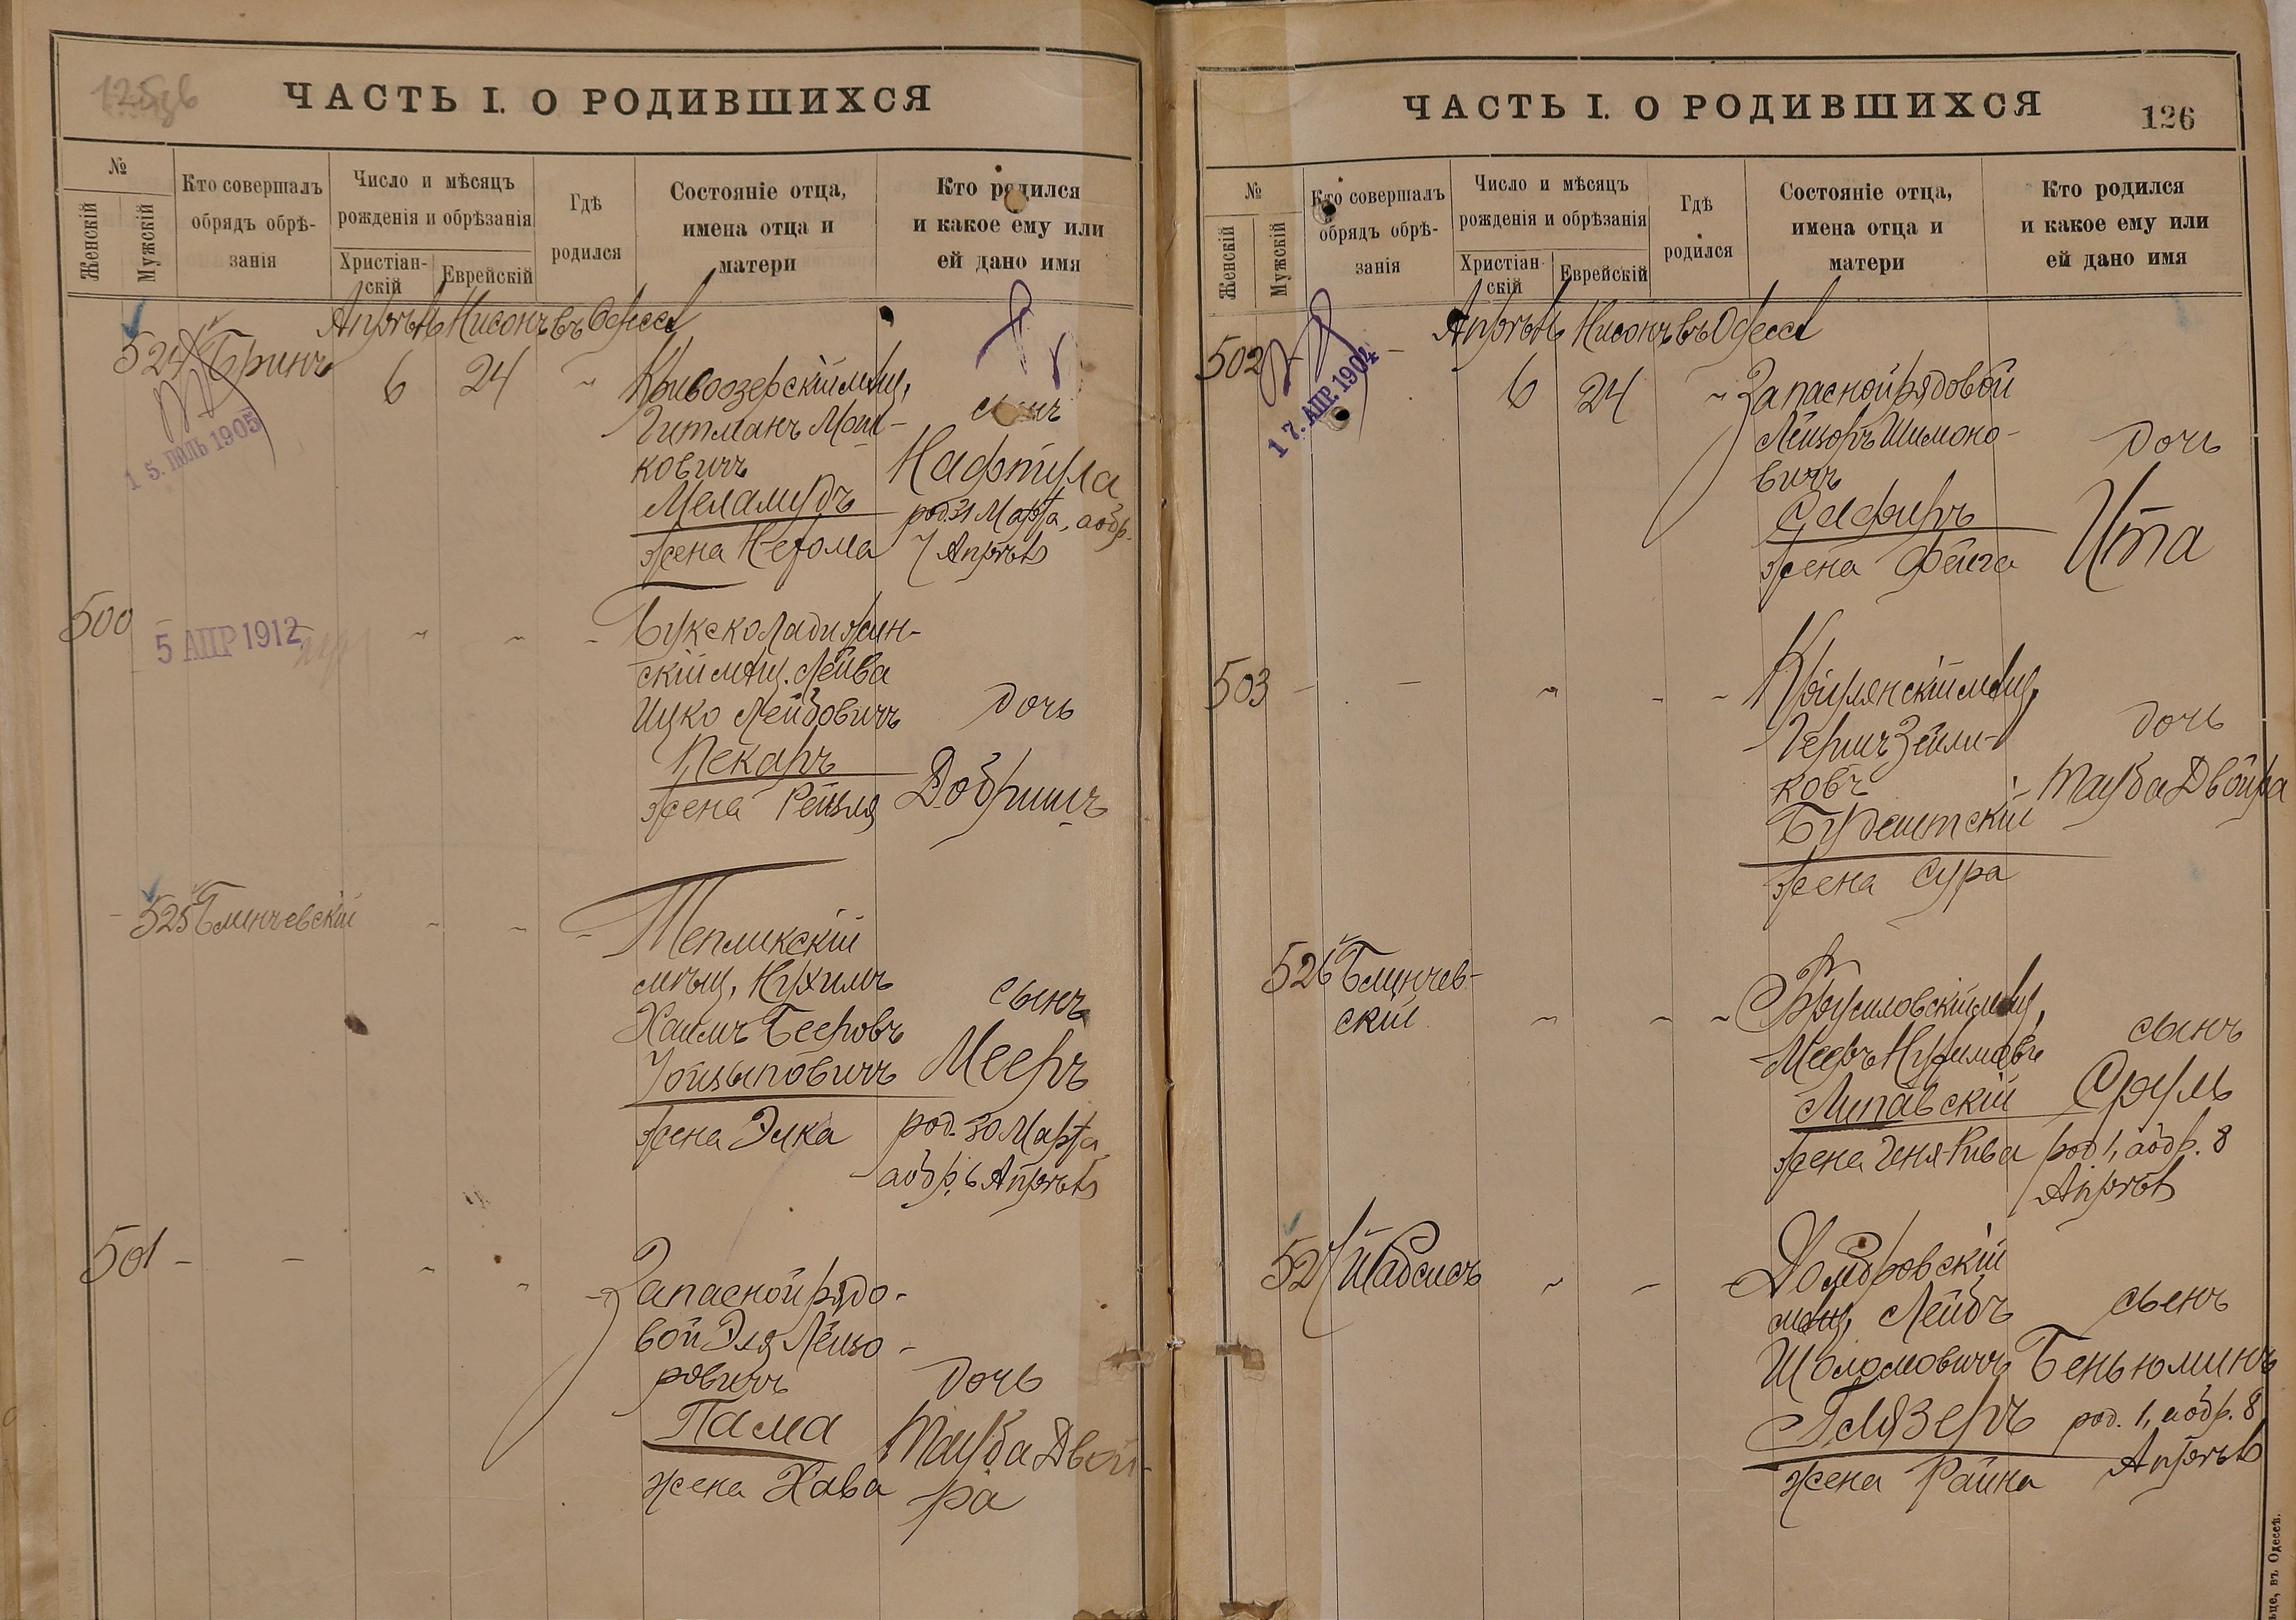 125об
ЧАСТЬ I. О РОДИВШИХСЯ
№
Женскій
Мужскій
Кто совершалъ
обрядъ обрѣ-
занія
Число и мѣсяцъ
рожденія и обрѣзанія
Христіан-
скій
Еврейскій
Гдѣ
родился
Состояніе отца,
имена отца и
матери
Кто родился
и какое ему или
ей дано имя
Апрѣль Нисонъ въ Одессѣ
524 Бринъ 6 24 Кривоозерскій мѣщ.
Гитманъ Мош-
ковичъ
Меламудъ
жена Нехома
сынъ
Нафтула
род. 31 Марта, аобр.
7 Апрѣля
15. ІЮЛЬ 1905
500
5 АПР 1912
Букско Ладыжин-
скій мѣщ. Лейва
Ицко Лейбовичъ
Пекаръ
жена Рейзля
дочь
Добришъ
525 Блинчевскій
Тепликскій
мѣщ. Нухимъ
Хаимъ Беровъ
Іойзыповичъ
жена Элка
сынъ
Мееръ
род. 30 Марта
аобр. 6 Апрѣля
501
Запасной рядо-
вой Эля Лейзо-
ровичъ
Пама
жена Хава
дочь
Тауба Двой-
ра
ЧАСТЬ I. О РОДИВШИХСЯ
126
№
Женскій
Мужскій
Кто совершалъ
обрядъ обрѣ-
занія
Число и мѣсяцъ
рожденія и обрѣзанія
Христіан-
скій
Еврейскій
Гдѣ
родился
Состояніе отца,
имена отца и
матери
Кто родился
и какое ему или
ей дано имя
Апрѣль Нисонъ въ Одессѣ
502 6 24 Запасной рядовой
17. АПР. 1904
Лейзоръ Шимоно-
вичъ
Сафиръ
жена Фейга
дочь
Ита
503
мѣщ.
Гершъ Зейли-
ковъ
Будештскій
жена Сура
дочь
Тауба Двойра
526 Блинчев-
скій
Брусиловскій мѣщ.
Мееръ Нухимовъ
Липавскій
жена Геня-Рива
сынъ
Сруль
род 1, аобр. 8
Апрѣля
527 Шабсисъ
Домбровскій
мѣщ. Лейбъ
Шоломовичъ
Глязеръ
жена Райна
сынъ
Беньюминъ
род. 1, аобр. 8
Апрѣля
въ Одессѣ.